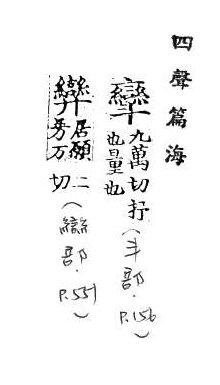 四聲篇海
九萬切抒也量也(半部.P.156)
居願芳万二切(䜌部.P.551)